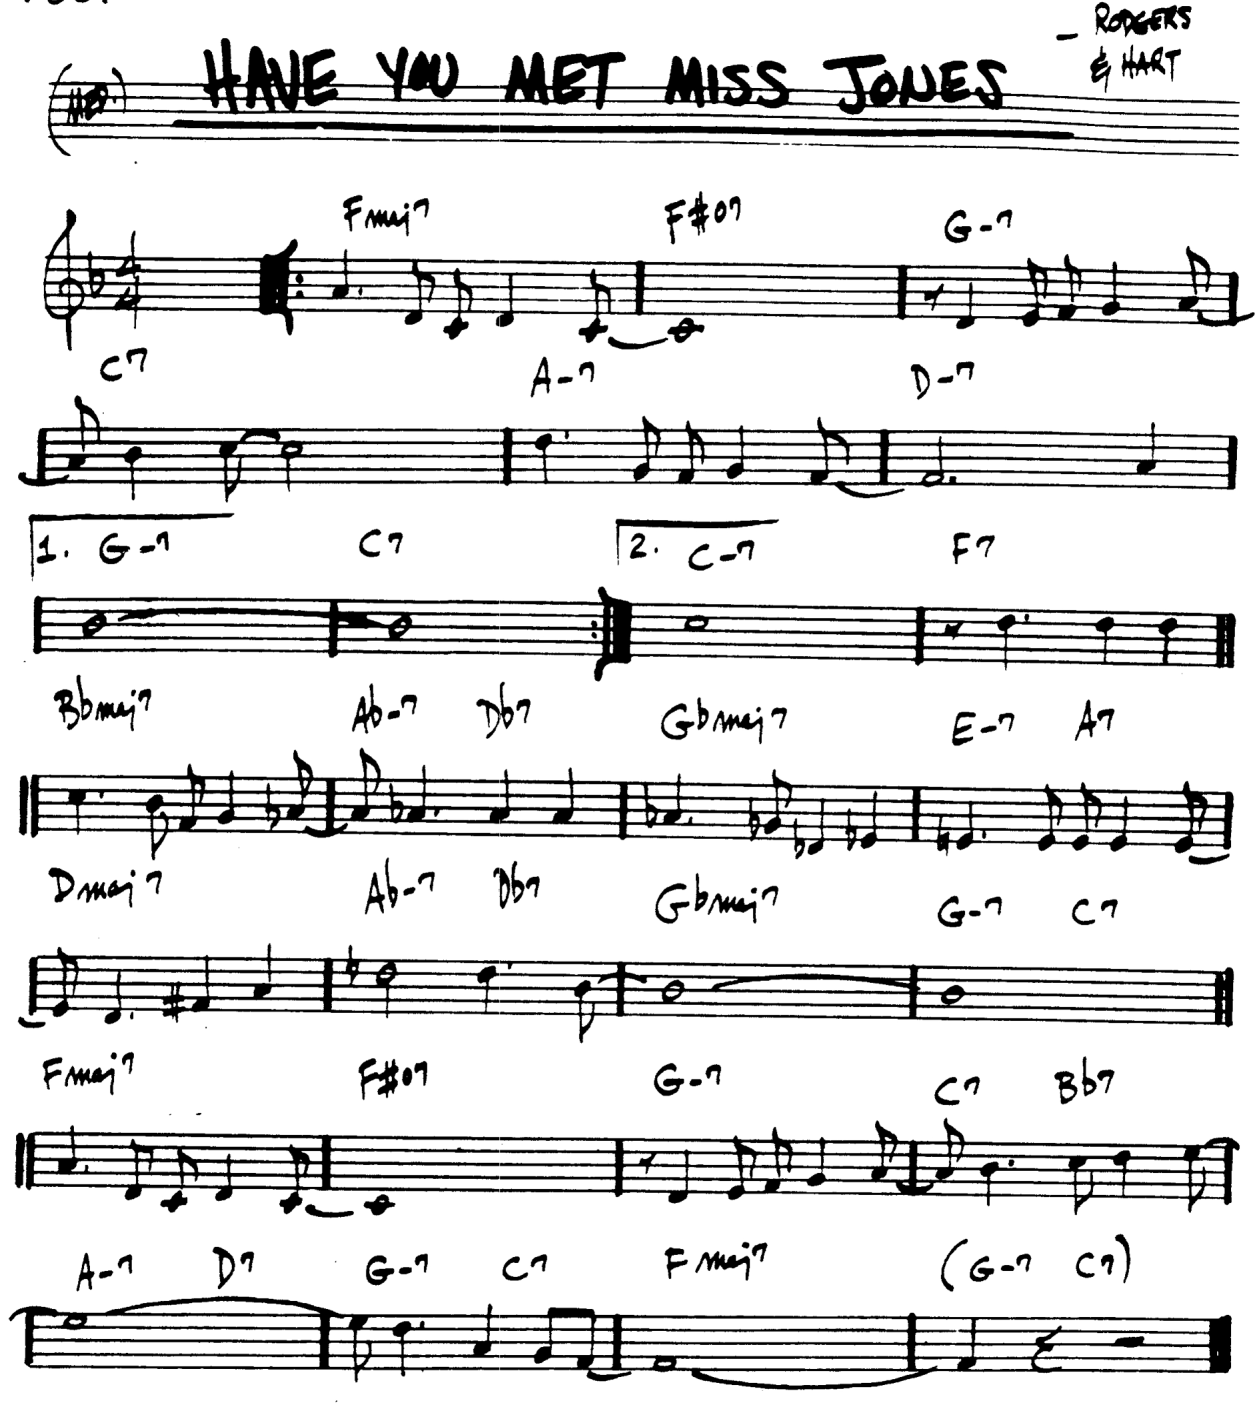 — RODGERS
& HART
(MED.) HAVE YOU MET MISS JONES
Fmaj7 F#o7 G-7
4
4
C7 A-7 D-7
1. G-7 C7 2. C-7 F7
Bbmaj7 Ab-7 Db7 Gbmaj7 E-7 A7
Dmaj7 Ab-7 Db7 Gbmaj7 G-7 C7
Fmaj7 F#o7 G-7 C7 Bb7
A-7 D7 G-7 C7 Fmaj7 (G-7 C7)